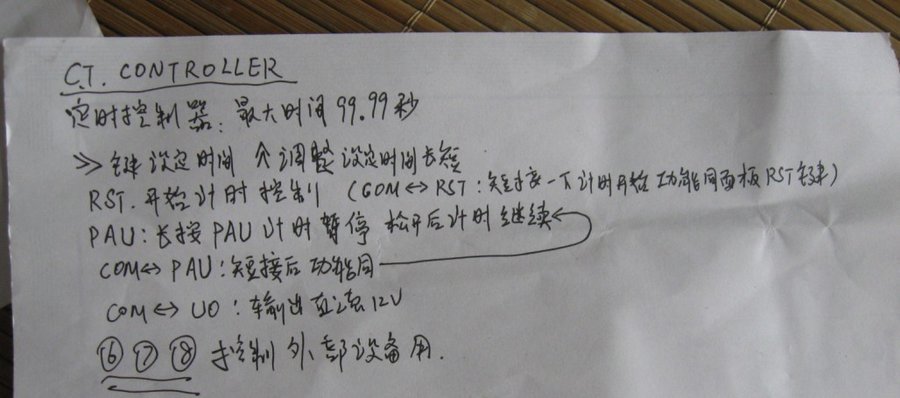 C.T. CONTROLLER
定时控制器: 最大时间 99.99 秒
≫ 键设定时间 个调整设定时间长短
RST. 开始计时控制 (COM↔RST: 短接一下计时开始 功能同面板RST键)
PAU: 长按PAU计时暂停 松开后计时继续
COM↔PAU: 短接后功能同
COM↔UO: 输出直流12V
⑥ ⑦ ⑧ 控制外部设备用.